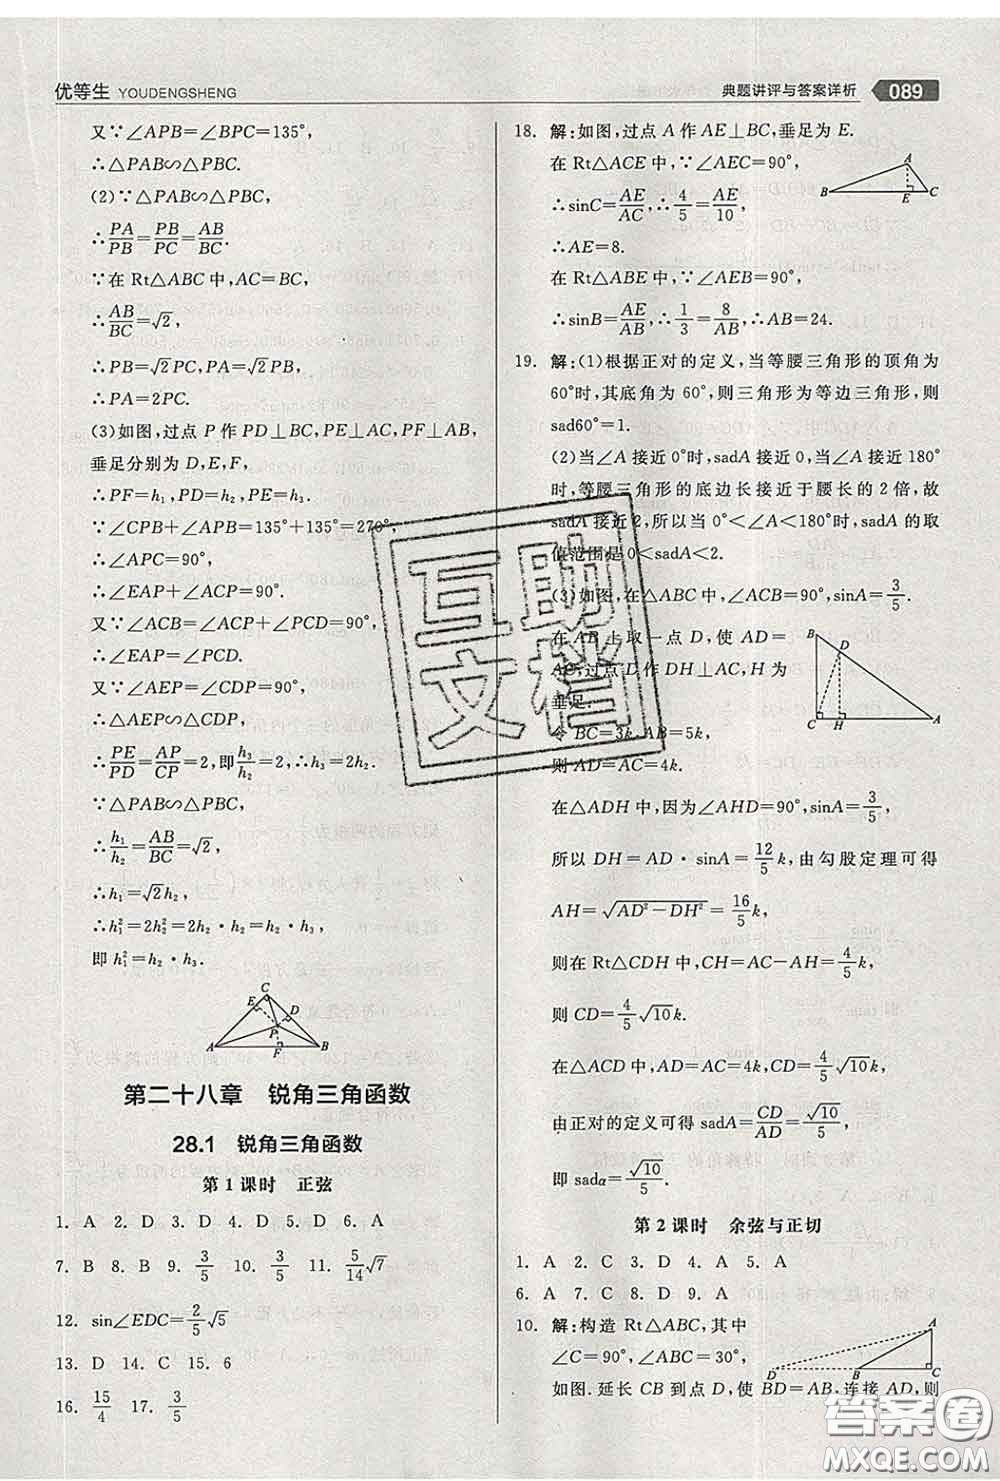 优等生 YOUDENGSHENG
典题讲评与答案详析 089
又∵∠APB=∠BPC=135°,
∴△PAB∽△PBC.
(2)∵△PAB∽△PBC,
∴PA/PB=PB/PC=AB/BC.
∵在 Rt△ABC 中,AC=BC,
∴AB/BC=√2,
∴PB=√2PC,PA=√2PB,
∴PA=2PC.
(3)如图,过点 P 作 PD⊥BC,PE⊥AC,PF⊥AB,
垂足分别为 D,E,F,
∴PF=h₁,PD=h₂,PE=h₃.
∵∠CPB+∠APB=135°+135°=270°,
∴∠APC=90°,
∴∠EAP+∠ACP=90°.
又∵∠ACB=∠ACP+∠PCD=90°,
∴∠EAP=∠PCD.
又∵∠AEP=∠CDP=90°,
∴△AEP∽△CDP,
∴PE/PD=AP/CP=2,即h₃/h₂=2,∴h₃=2h₂.
∵△PAB∽△PBC,
∴h₁/h₂=AB/BC=√2,
∴h₁=√2h₂,
∴h₁²=2h₂²=2h₂·h₂=h₂·h₃.
即 h₁²=h₂·h₃.
C
E
D
P
A
F
B
第二十八章 锐角三角函数
28.1 锐角三角函数
第 1 课时 正弦
1. A 2. D 3. D 4. D 5. D 6. A
7. B 8. D 9. 3/5 10. 3/5 11. 5/14√7
12. sin∠EDC=2/5√5
13. D 14. C 15. 6
16. 15/4 17. 3/5
18. 解:如图,过点 A 作 AE⊥BC,垂足为 E.
在 Rt△ACE 中,∵∠AEC=90°,
∴sinC=AE/AC,∴4/5=AE/10,
∴AE=8.
在 Rt△ABE 中,∵∠AEB=90°,
∴sinB=AE/AB,∴1/3=8/AB,∴AB=24.
A
B
E
C
19. 解:(1)根据正对的定义,当等腰三角形的顶角为
60°时,其底角为 60°,则三角形为等边三角形,则
sad60°=1.
(2)当∠A 接近 0°时,sadA 接近 0,当∠A 接近 180°
时,等腰三角形的底边长接近于腰长的 2 倍,故
sadA 接近 2,所以当 0°<∠A<180°时,sadA 的取
值范围是 0<sadA<2.
(3)如图,在△ABC 中,∠ACB=90°,sinA=3/5.
在 AB 上取一点 D,使 AD=
AC,过点 D 作 DH⊥AC,H 为
垂足.
令 BC=3k,AB=5k,
则 AD=AC=4k.
B
D
C
H
A
在△ADH 中,因为∠AHD=90°,sinA=3/5,
所以 DH=AD·sinA=12/5k,由勾股定理可得
AH=√(AD²-DH²)=16/5k.
则在 Rt△CDH 中,CH=AC-AH=4/5k,
则 CD=4/5√10k.
在△ACD 中,AD=AC=4k,CD=4/5√10k,
由正对的定义可得 sadA=CD/AD=√10/5,
即 sadα=√10/5.
第 2 课时 余弦与正切
1. A 2. C 3. D 4. A 5. A
6. A 7. C 8. D 9. A
10. 解:构造 Rt△ABC,其中
∠C=90°,∠ABC=30°,
如图.延长 CB 到点 D,使 BD=AB,连接 AD,则
A
D
B
C
互助文档
答案圈
MXQE.COM